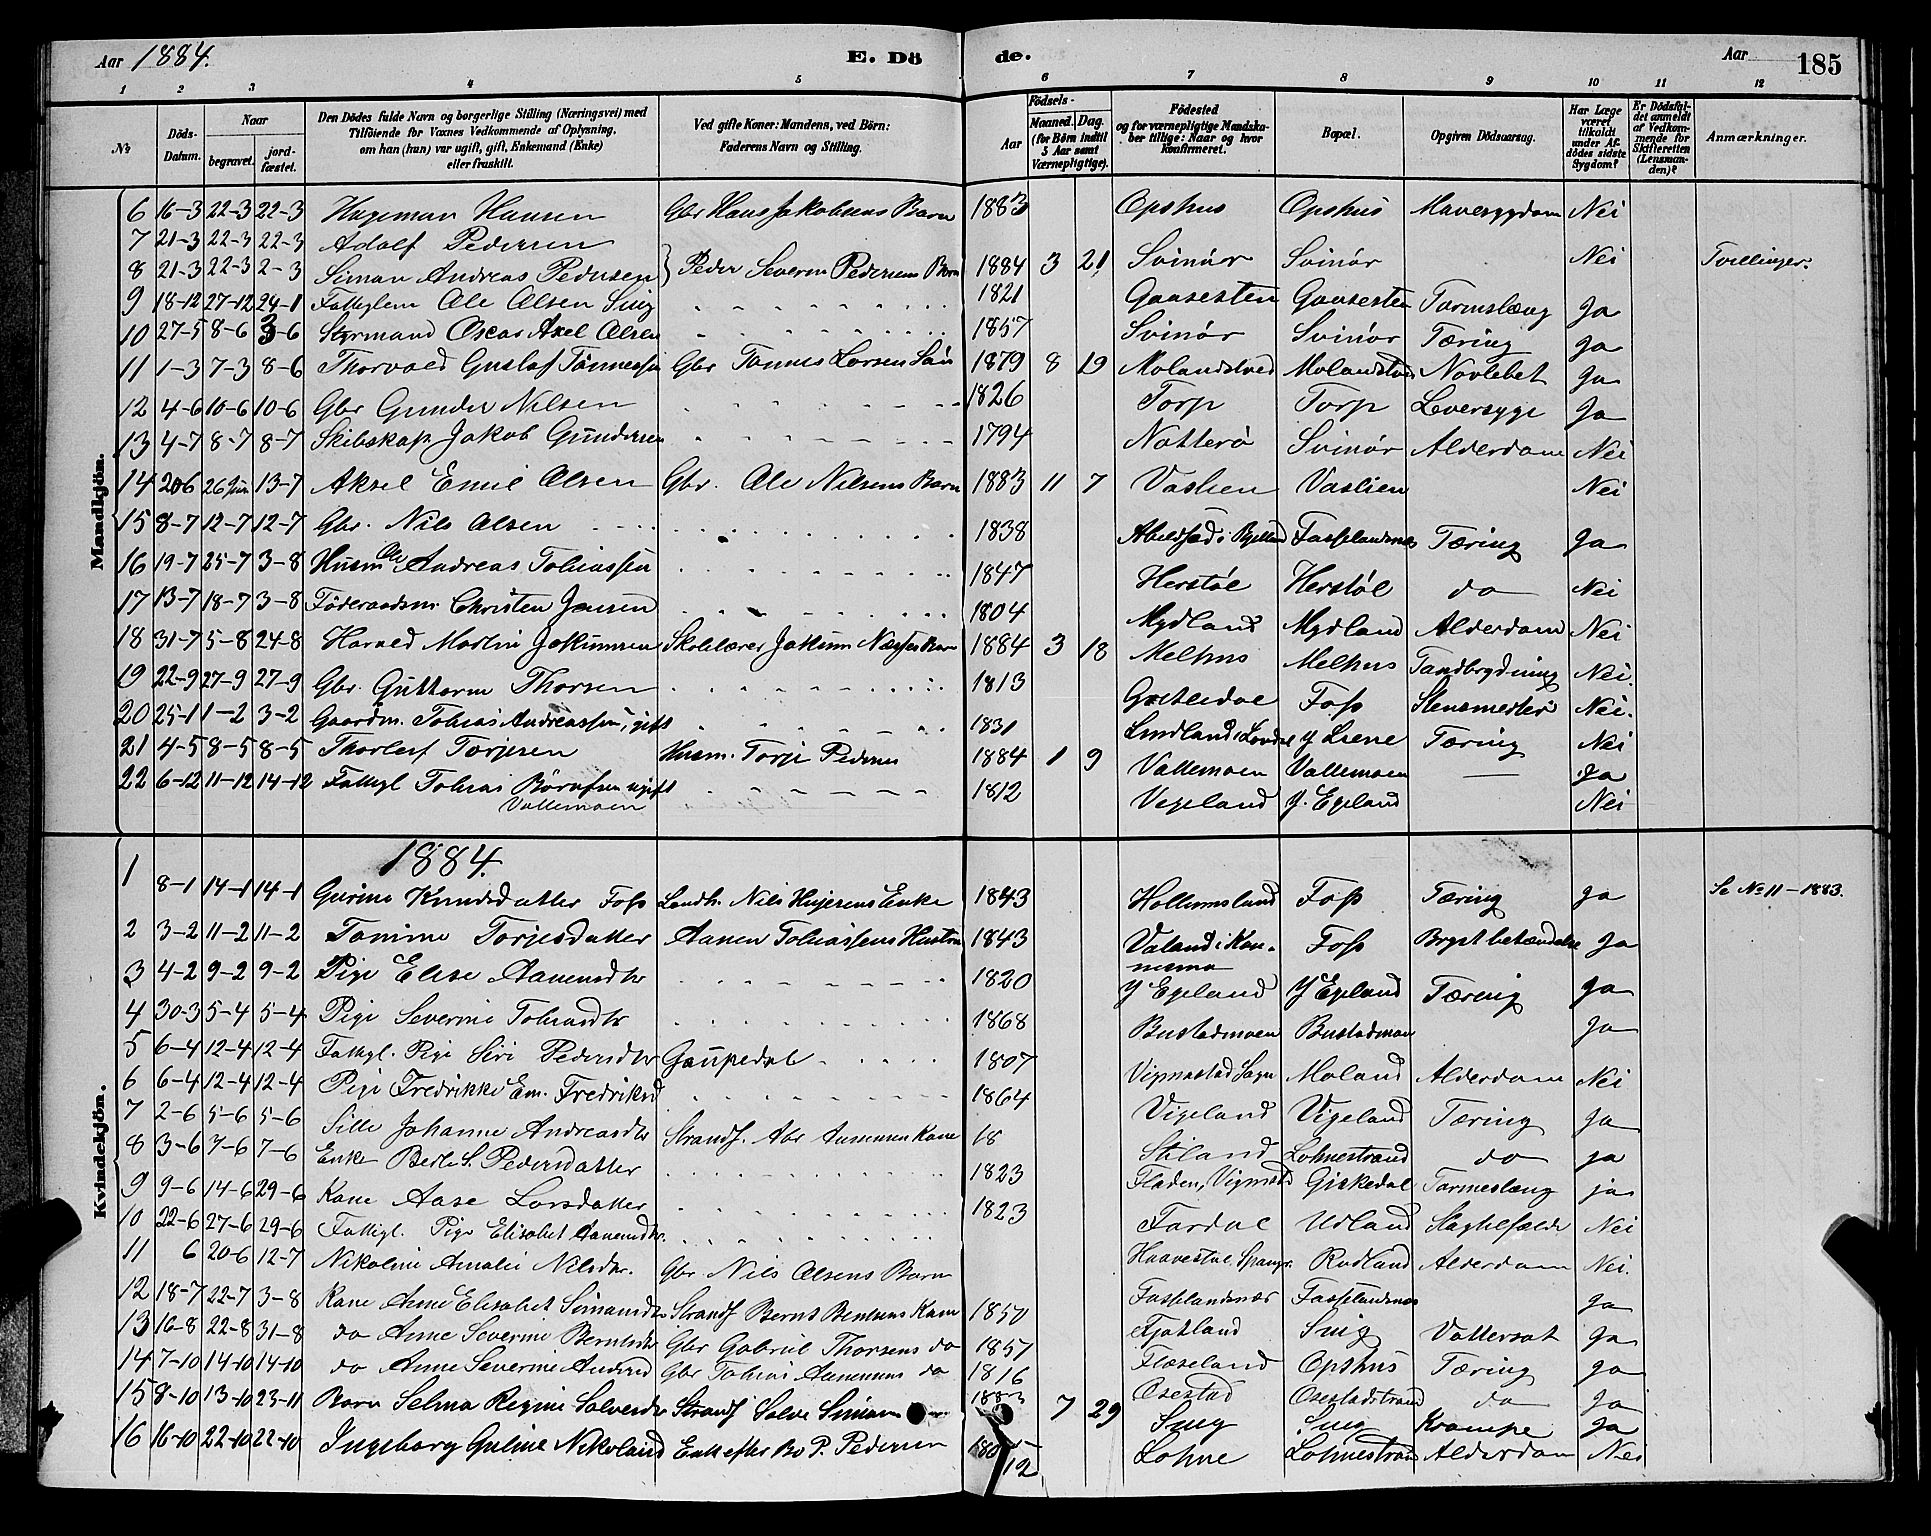 Aar 1884. E. Dö de. Aar 185
1 2 3 4 5 6 7 8 9 10 11 12
No
Döds-Datum.
Naar
begravet. jordfæstet.
Den Dödes fulde Navn og borgerlige Stilling (Næringsvei) med
Tilföiende for Voxnes Vedkommende af Oplysning,
om han (hun) var ugift, gift, Enkemand (Enke)
eller fraskilt.
Ved gifte Koner: Mandens, ved Börn:
Faderens Navn og Stilling.
Födsels-
Aar
Maaned. Dag.
(for Börn indtil 5 Aar samt Værnepligtige).
Födested
og for værnepligtige Mandskaber tillige: Naar og hvor konfirmeret.
Bopæl.
Opgiven Dödsaarsag.
Har Læge været tilkaldt under Afdödes sidste Sygdom?
Er Dödsfaldet anmeldt af Vedkommende for Skifteretten (Lensmanden)?
Anmærkninger.
Mandkjön.
6 16-3 22-3 22-3 Hageman Hansen Gbr Hans Jakobsens Barn 1883 Opshus Opshus Mavesygdom Nei
7 21-3 22-3 22-3 Adolf Pedersen
8 21-3 22-3 2-3 Simon Andreas Pedersen } Peder Severin Pedersens Barn 1884 3 21 Svinör Svinör Nei Tvillinger.
9 18-12 27-12 24-1 Fattiglem Ole Olsen 1821 Gaasesten Gaasesten Tarmslæng Ja
10 27-5 8-6 3-6 Styrmand Oscar Axel Olsen 1857 Svinör Svinör Tæring Ja
11 1-3 7-3 8-6 Thorvald Gustaf Tönnessen Gbr Tönnes Larsen Sön 1879 8 19 Molandstved Molandstved Ja
12 4-6 10-6 10-6 Gbr Gunder Nilsen 1826 Torp Torp Leversyge Ja
13 4-7 8-7 8-7 Skibskap. Jakob Gundersen 1794 Nötterö Svinör Alderdom Nei
14 20 6 26 Juni 13-7 Aksel Emil Olsen Gbr. Ole Nilsens Barn 1883 11 7 Vaslien Vaslien Nei
15 8-7 12-7 12-7 Gbr. Nils Olsen 1838 i Bjelland Fasselandsnes Tæring Ja
16 19-7 25-7 3-8 Husm Ole Andreas Tobiassen 1847 Herstöl Herstöl do Nei
17 13-7 18-7 3-8 Föderaadsm. Christen Jensen 1804 Mydland Mydland Alderdom Nei
18 31-7 5-8 24-8 Harald Martin Jokumsen Skolelærer Jokum 1884 3 18 Melhus Melhus Tandbrydning Nei.
19 22-9 27-9 27-9 Gbr. Guttorm Thorsen 1813 Foss Nei.
20 25-1 1-2 3-2 Gaardm. Tobias Andreassen, gift 1831 Lindland i Y Liene Tæring Nei
21 4-5 8-5 8-5 Thorleif Torjesen Husm. Torje Pedersens 1884 1 9 Vallemoen Vallemoen — Ja
22 6-12 11-12 14-12 Fattigl Tobias ugift 1812 Vegeland Y. Egeland Nei
Vallemoen
Kvindekjön.
1884.
1 8-1 14-1 14-1 Gurine Knudsdatter Foss Landh. Nils Enke 1843 Hollumsland Foss Tæring Ja Se No 11 - 1883.
2 3-2 11-2 11-2 Tomine Torjesdatter Aanen Tobiassens Hustru 1843 Valand i Kon- Foss Brystbetændelse Ja
nesmo
3 4-2 9-2 9-2 Pige Elise Aanensdtr 1820 Y Egeland Y Egeland Tæring Ja
4 30-3 5-4 5-4 Pige Severine Tobiasdtr 1868 Bustadmoen Bustadmoen Ja
5 6-4 12-4 12-4 Fattigl. Pige Siri Pedersdtr Gaupedal 1807 Vigmostad Sogn Moland Alderdom Nei
6 6-4 12-4 12-4 Pige Fredrikke Em. Fredriksd 1864 Vigeland Vigeland Tæring Ja
7 2-6 5-6 5-6 Sille Johanne Andreasdtr Strands. Abr Aanensen Kone 18 Stiland Lohnestrand do ja
8 3-6 7-6 7-6 Enke Berte S. Pedersdatter 1823 Fladen, Vigmostad Girkedal Tarmeslæng ja
9 9-6 14-6 29-6 Kone Aase Larsdatter 1823 Fardal Udland Slagtilfælde Nei
10 22-6 27-6 29-6 Fattigl. Pige Elisabet Aanensdtr. Haavestöl, Rödland Alderdom Nei.
11 6 20-6 12-7 Nikoline Amalie Nilsdtr. Gbr. Nils Olsens Barn Fasselandsnes Fasselandsnes Ja
12 18-7 22-7 3-8 Kone Anne Elisabet Simonsdtr Strands Bernt Bentsens Kone 1850 Fjotland Vattersot Ja
13 16-8 22-8 31-8 do Anne Severine Berntsdtr Gbr Gabriel Thorsens do 1857 Flæseland Opshus Tæring Ja
14 7-10 14-10 14-10 do Anne Severine Andersd Gbr Tobias Aanensens do 1816 Osestad Osestadstrand do Ja
15 8-10 13-10 23-11 Barn Selma Regine Salvesdtr Strands Salve Simon 1883 7 29 Krampe Ja
16 16-10 22-10 22-10 Ingeborg Guline Nikolaisd Enke efter Bo P. Pedersen 12 Lohne Lohnestrand Alderdom Nei